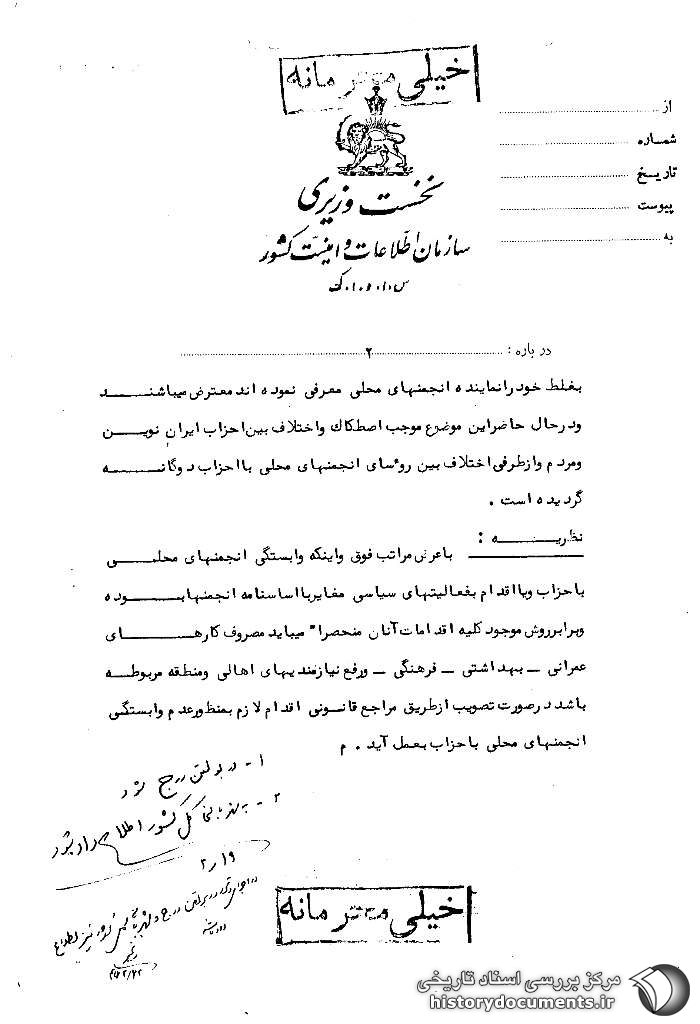 خیلی محترمانه
از
شماره
تاریخ
پیوست
به
نخست وزیری
سازمان اطلاعات و امنیت کشور
س.ا.و.ا.ک
درباره : ۲
بغلط خود را نماینده انجمنهای محلی معرفی نموده اند معترض میباشند
و در حال حاضر این موضوع موجب اصطکاک و اختلاف بین احزاب ایران نوین
و مردم و از طرفی اختلاف بین روسای انجمنهای محلی با احزاب دوگانه
گردیده است .
نظریه :
با عرض مراتب فوق و اینکه وابستگی انجمنهای محلی
با حزاب و یا اقدام بفعالیتهای سیاسی مغایر با اساسنامه انجمنها بوده
و برابر روش موجود کلیه اقدامات آنان منحصرا" میباید مصروف کارهای
عمرانی _ بهداشتی _ فرهنگی _ و رفع نیازمندیهای اهالی و منطقه مربوطه
باشد در صورت تصویب از طریق مراجع قانونی اقدام لازم بمنظور عدم وابستگی
انجمنهای محلی با حزاب بعمل آید . م
۱ - در بولتن درج شود
۲ - به کل کشور اطلاع داده شود
۲/۱۹
خیلی محترمانه
مرکز بررسی اسناد تاریخی
historydocuments.ir